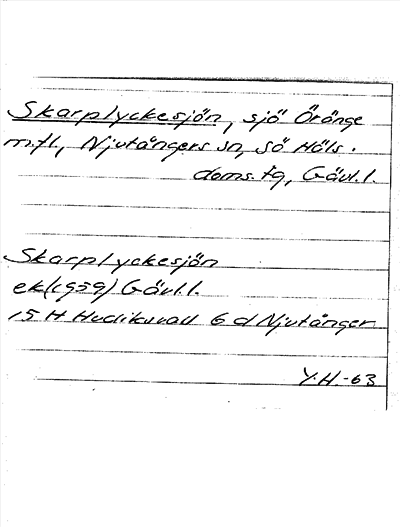 Skarplyckesjön, sjö Öränge
m.fl., Njutångers sn, sö Häls.
doms. tg, Gävl.l.
Skarplyckesjön
ek(1959) Gävl.l.
15 H Hudiksvall 6 d Njutånger
Y.H.-63